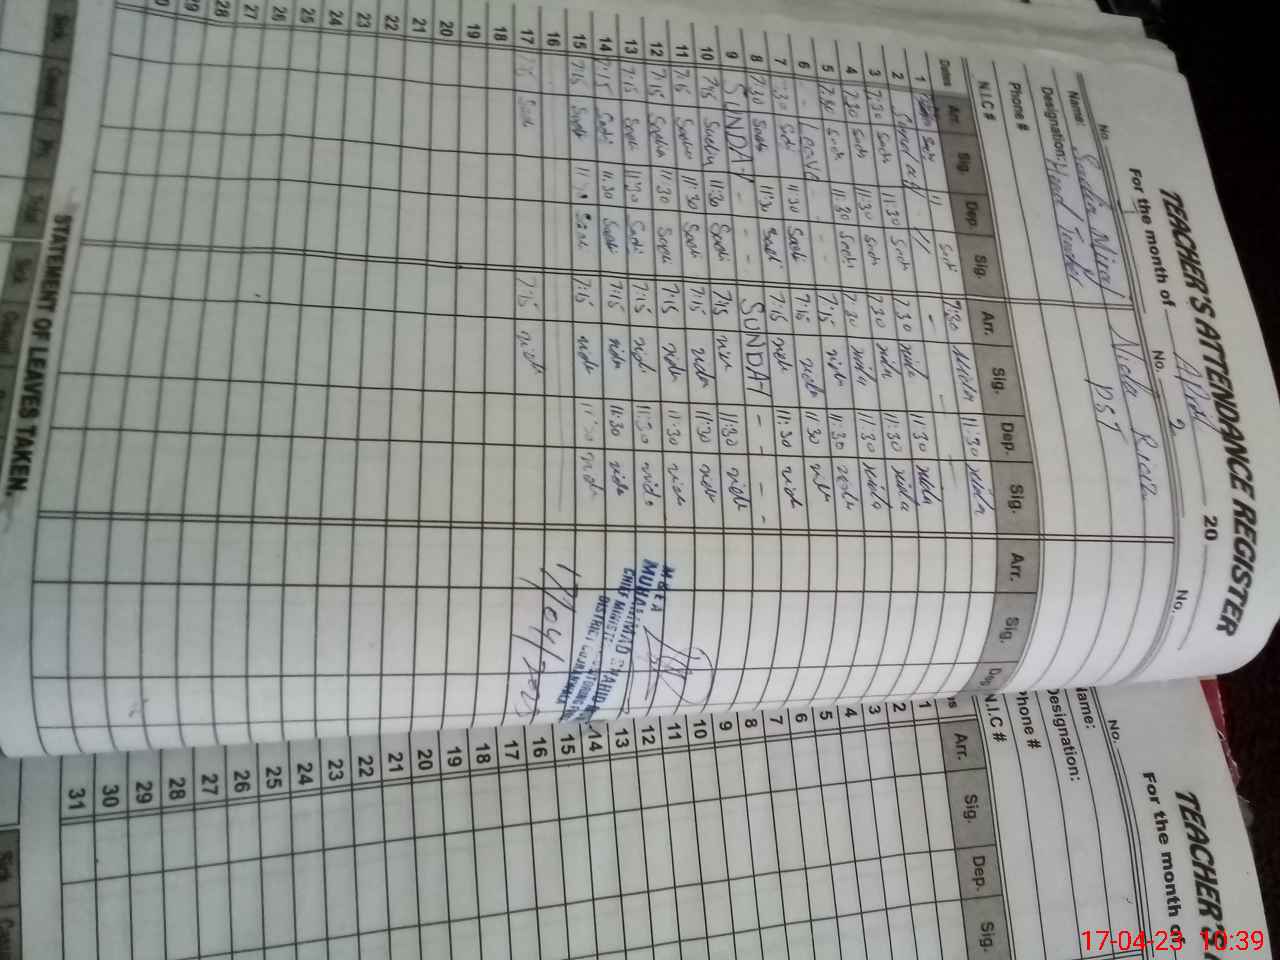 TEACHER'S ATTENDANCE REGISTER
For the month of April 20
No. 1 No. 2 No.
Name: Sadia Miraj Nida Riaz
Designation: Head Teacher PST
Phone #
N.I.C #
Dates Arr. Sig. Dep. Sig. Arr. Sig. Dep. Sig. Arr. Sig. Dep.
1 7:30 nida 11:30 nida
2 Sunday
3 7:30 Sadi 11:30 Sadi 7:30 nida 11:30 nida
4 7:30 Sadi 11:30 Sadi 7:30 nida 11:30 nida
5 7:30 Sadi 11:30 Sadi 7:15 nida 11:30 nida
6 - Leave - - 7:15 nida 11:30 nida
7 7:30 Sadi 11:30 Sadi 7:15 nida 11:30 nida
8 7:30 Sadi 11:30 Sadi
9 SUNDAY - - - SUNDAY - - -
10 7:15 Sadia 11:30 Sadi 7:15 nida 11:30 nida
11 7:15 Sadia 11:30 Sadi 7:15 nida 11:30 nida
12 7:15 Sadia 11:30 Sadi 7:15 nida 11:30 nida
13 7:15 Sadi 11:30 Sadi 7:15 nida 11:30 nida
14 7:15 Sadi 11:30 Sadi 7:15 nida 11:30 nida
15 7:15 Sadi 11:30 Sadi 7:15 nida 11:30 nida
16
17 7:15 Sadi 7:15 nida
18
19
20
21
22
23
24
25
26
27
28
29
30
M&EA
CHIEF MINIST
DISTRICT
17/04/2023
STATEMENT OF LEAVES TAKEN.
Sick Casual Total Sick Casual
TEACHER'S
For the month of
No.
Name:
Designation:
Phone #
N.I.C #
Arr. Sig. Dep. Sig.
1
2
3
4
5
6
7
8
9
10
11
12
13
14
15
16
17
18
19
20
21
22
23
24
25
26
27
28
29
30
31
17-04-23 10:39